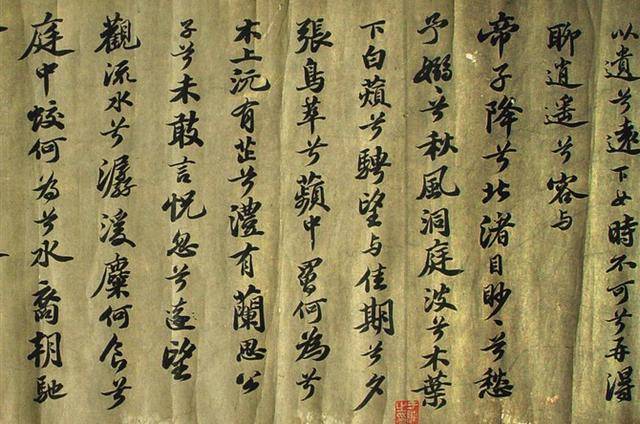 以遺兮遠下女時不可兮再得
聊逍遙兮容与
帝子降兮北渚目眇〻兮愁
予嫋〻兮秋風洞庭波兮木葉
下白蘋兮騁望与佳期兮夕
張鳥萃兮蘋中罾何為兮
木上沅有芷兮澧有蘭思公
子兮未敢言怳忽兮遠望
觀流水兮潺湲麋何食兮
庭中蛟何為兮水裔朝馳